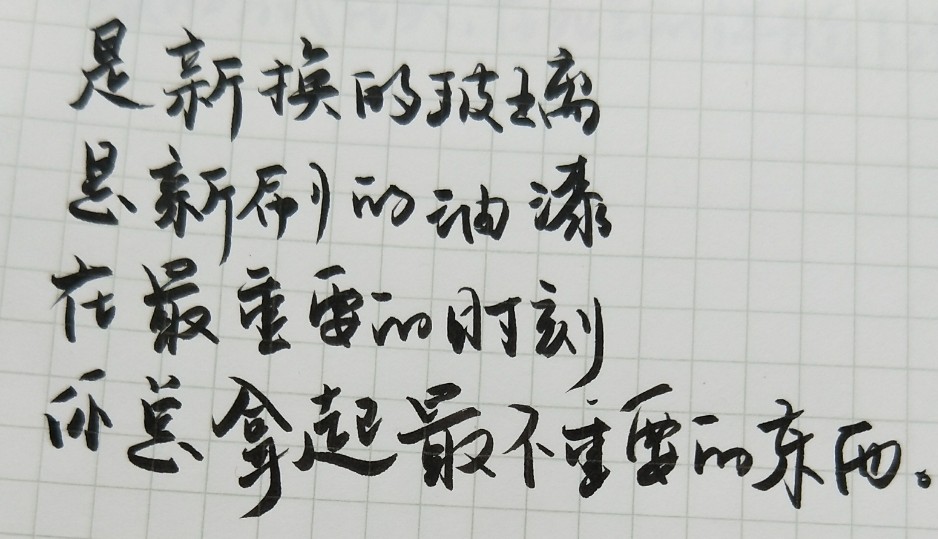 是新换的玻璃
是新刷的油漆
在最重要的时刻
你总拿起最不重要的东西。